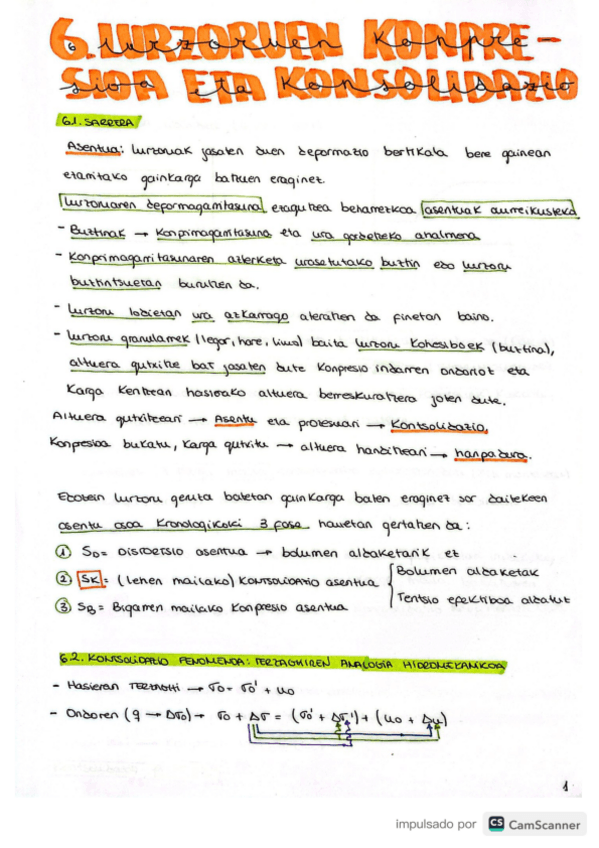 6. LURZORUEN KONPRE-
SIOA ETA KONSOLIDAZIO
6.1. SARRERA
Asentua: lurzoruak jasaten duen depormazio bertikala bere gainean
ezarritako gainkarga batuen eraginez.
Lurzoruaren depormagarritasuna ezagutzea beharrezkoa asentuak aurreikusteko
- Buztinak → Konprimagarritasuna eta ura gordetzeko ahalmena
- Konprimagarritasunaren azterketa urasetutako buztin edo lurzoru
buztintsuetan burutzen da.
- Lurzoru lodietan ura azkarrago ateratzen da finetan baino.
- Lurzoru granularrek (legar, hare, limo) baita lurzoru Kohesiboek (buztina),
altuera gutxitze bat jasaten dute Konpresio indarren ondorioz eta
Karga Kentzean hasierako altuera berreskuratzera jotzen dute.
Altuera gutxitzeari → Asentu eta prozesuari → Kontsolidazio,
Konpresioa bukatu, Karga gutxitu → altuera handitzeari → hanpadura.
Edozein lurzoru geruza batetan gainkarga baten eraginez sor daitekeen
asentu osoa Kronologikoki 3 fase hauetan gertatzen da:
① SD= Distortsio asentua → bolumen aldaketarik ez
② SK= (lehen mailako) KONTSOLIDAZIO asentua { Bolumen aldaketak
Tentsio efektiboa aldatuz
③ SB= Bigarren mailako Konpresio asentua
6.2. KONTSOLIDAZIO FENOMENOA: TERZAGHIREN ANALOGIA HIDROMEKANIKOA
- Hasieran TERZAGHI → σo= σo' + uo
- Ondoren (q → Δσo) → σo + Δσ = (σo' + Δσ') + (uo + Δu)
1
impulsado por CS CamScanner